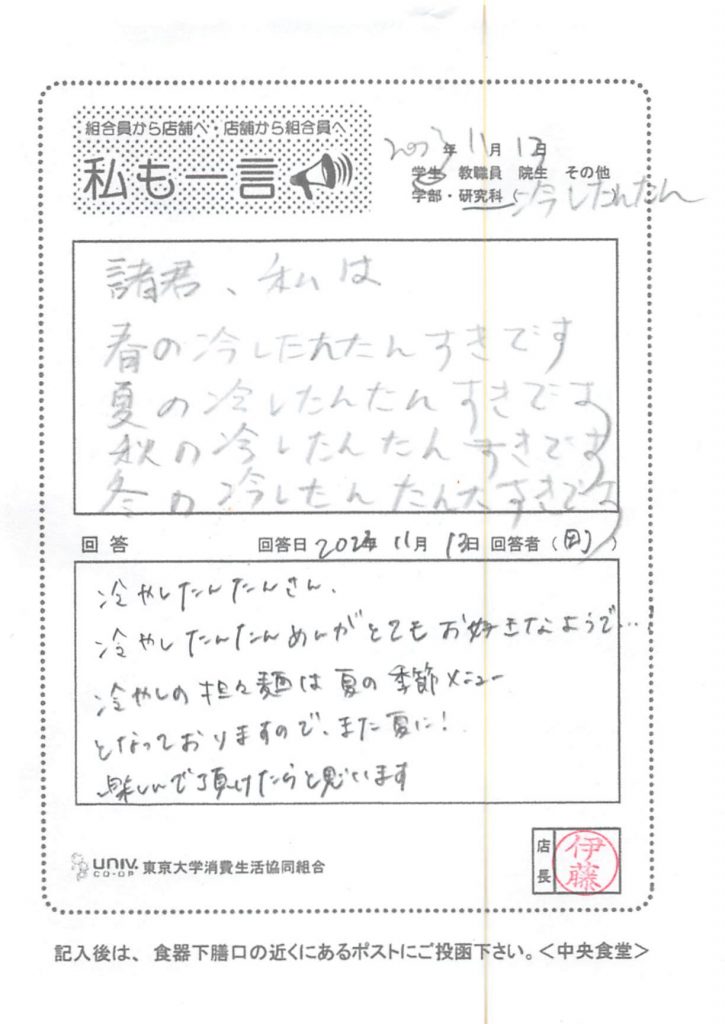 組合員から店舗へ・店舗から組合員へ
私も一言
2023年11月13日
学生 教職員 院生 その他
学部・研究科 (冷したんたん
諸君、私は
春の冷したんたんすきです
夏の冷したんたんすきです
秋の冷したんたんすきです
冬の冷したんたんすきです
回答 回答日 2023年 11月 13日 回答者( )
冷やしたんたんさん、
冷やしたんたんめんがとてもお好きなようで…!
冷やしの担々麺は夏の季節メニュー
となっておりますので、また夏に!
楽しんで頂けたらと思います
UNIV. CO-OP 東京大学消費生活協同組合
店長 伊藤
記入後は、食器下膳口の近くにあるポストにご投函下さい。<中央食堂>